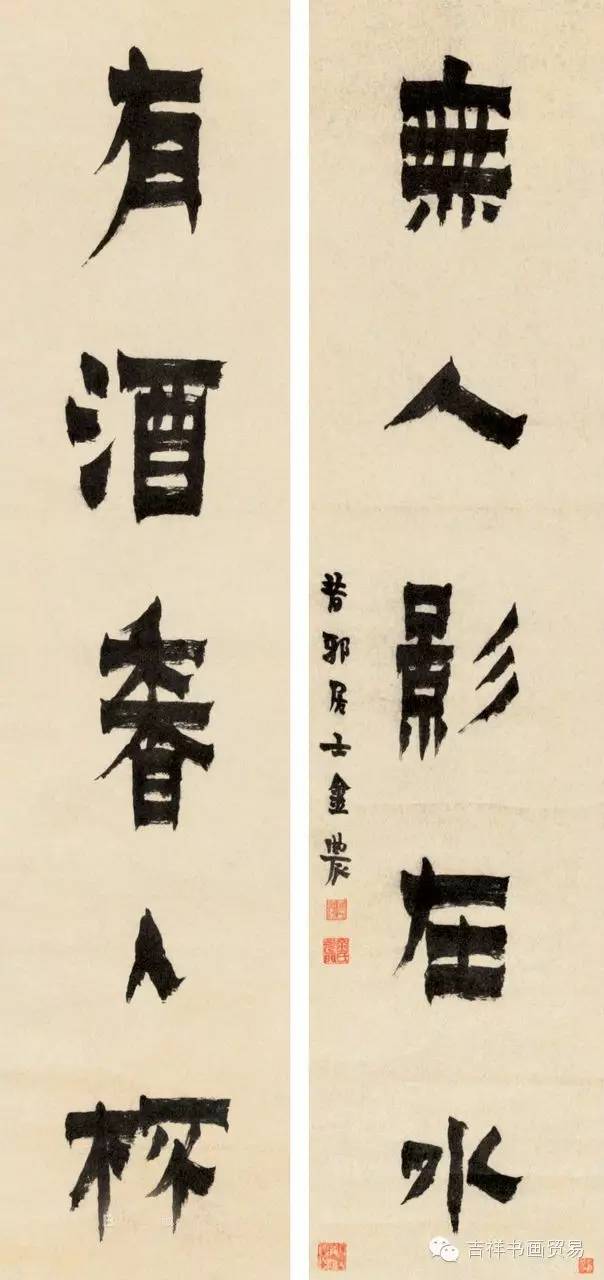 無人影在水
昔邪居士金農
有酒香入杯
吉祥书画贸易